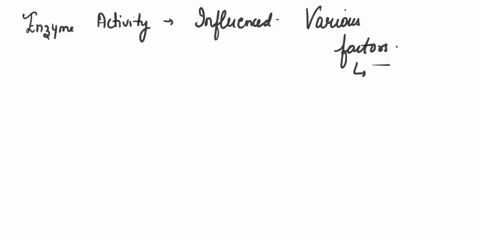 Enzyme Activity → Influenced. Various
factors.
↳ —